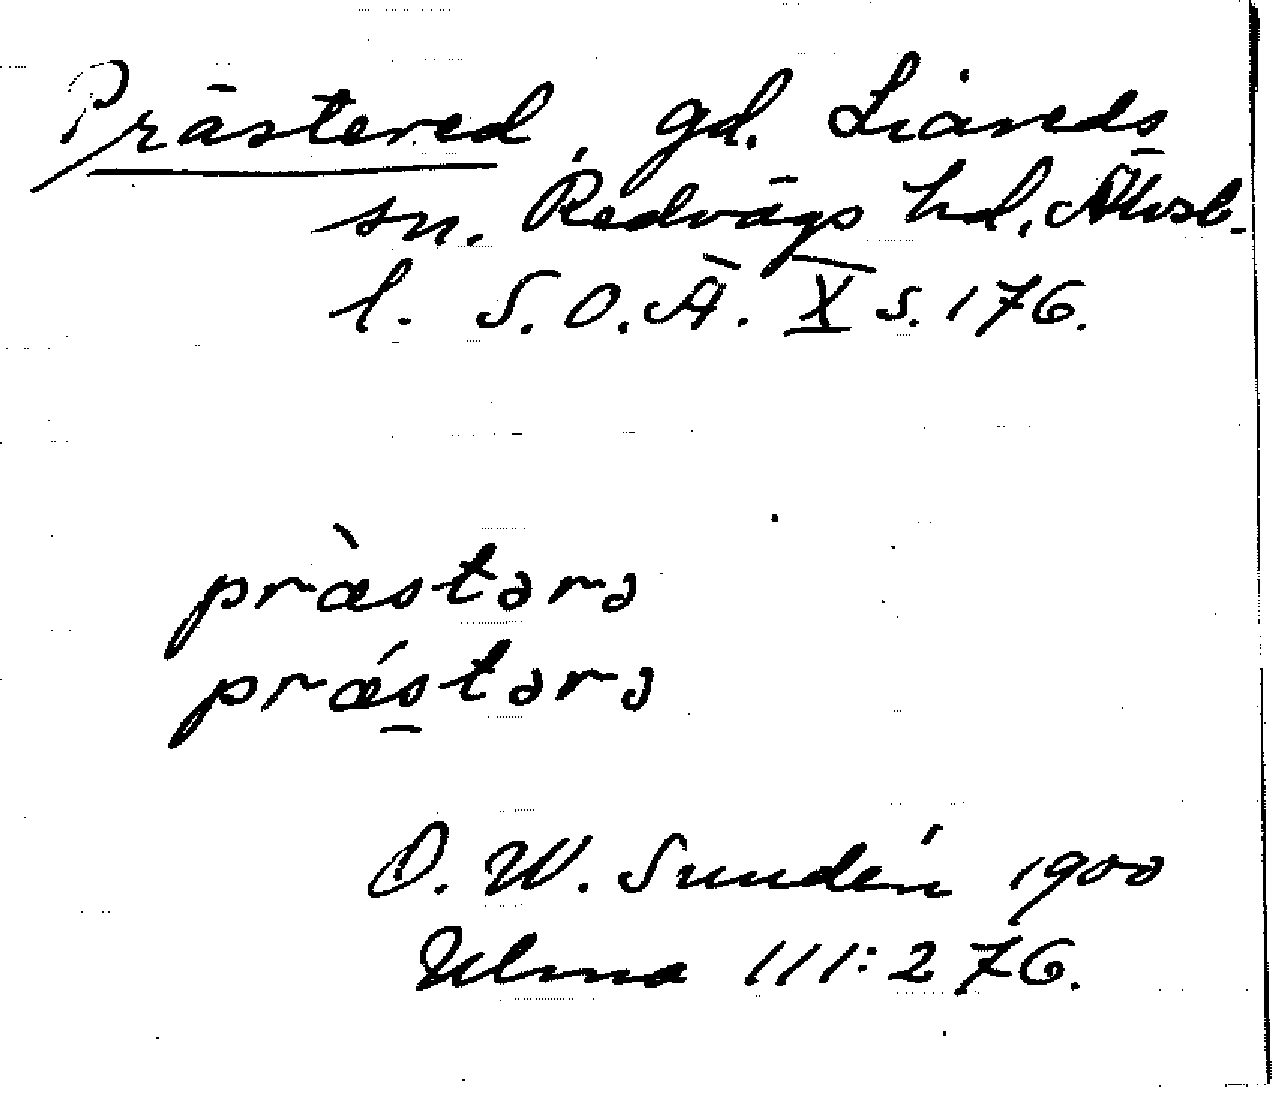 Prästered, gd. Liareds
sn. Redvägs hd, Älvsb.
l. S.O.Ä. X s. 176.
prὰstərə
prάs̱tərə
D. W. Sundén 1900
Ulma 111:276.